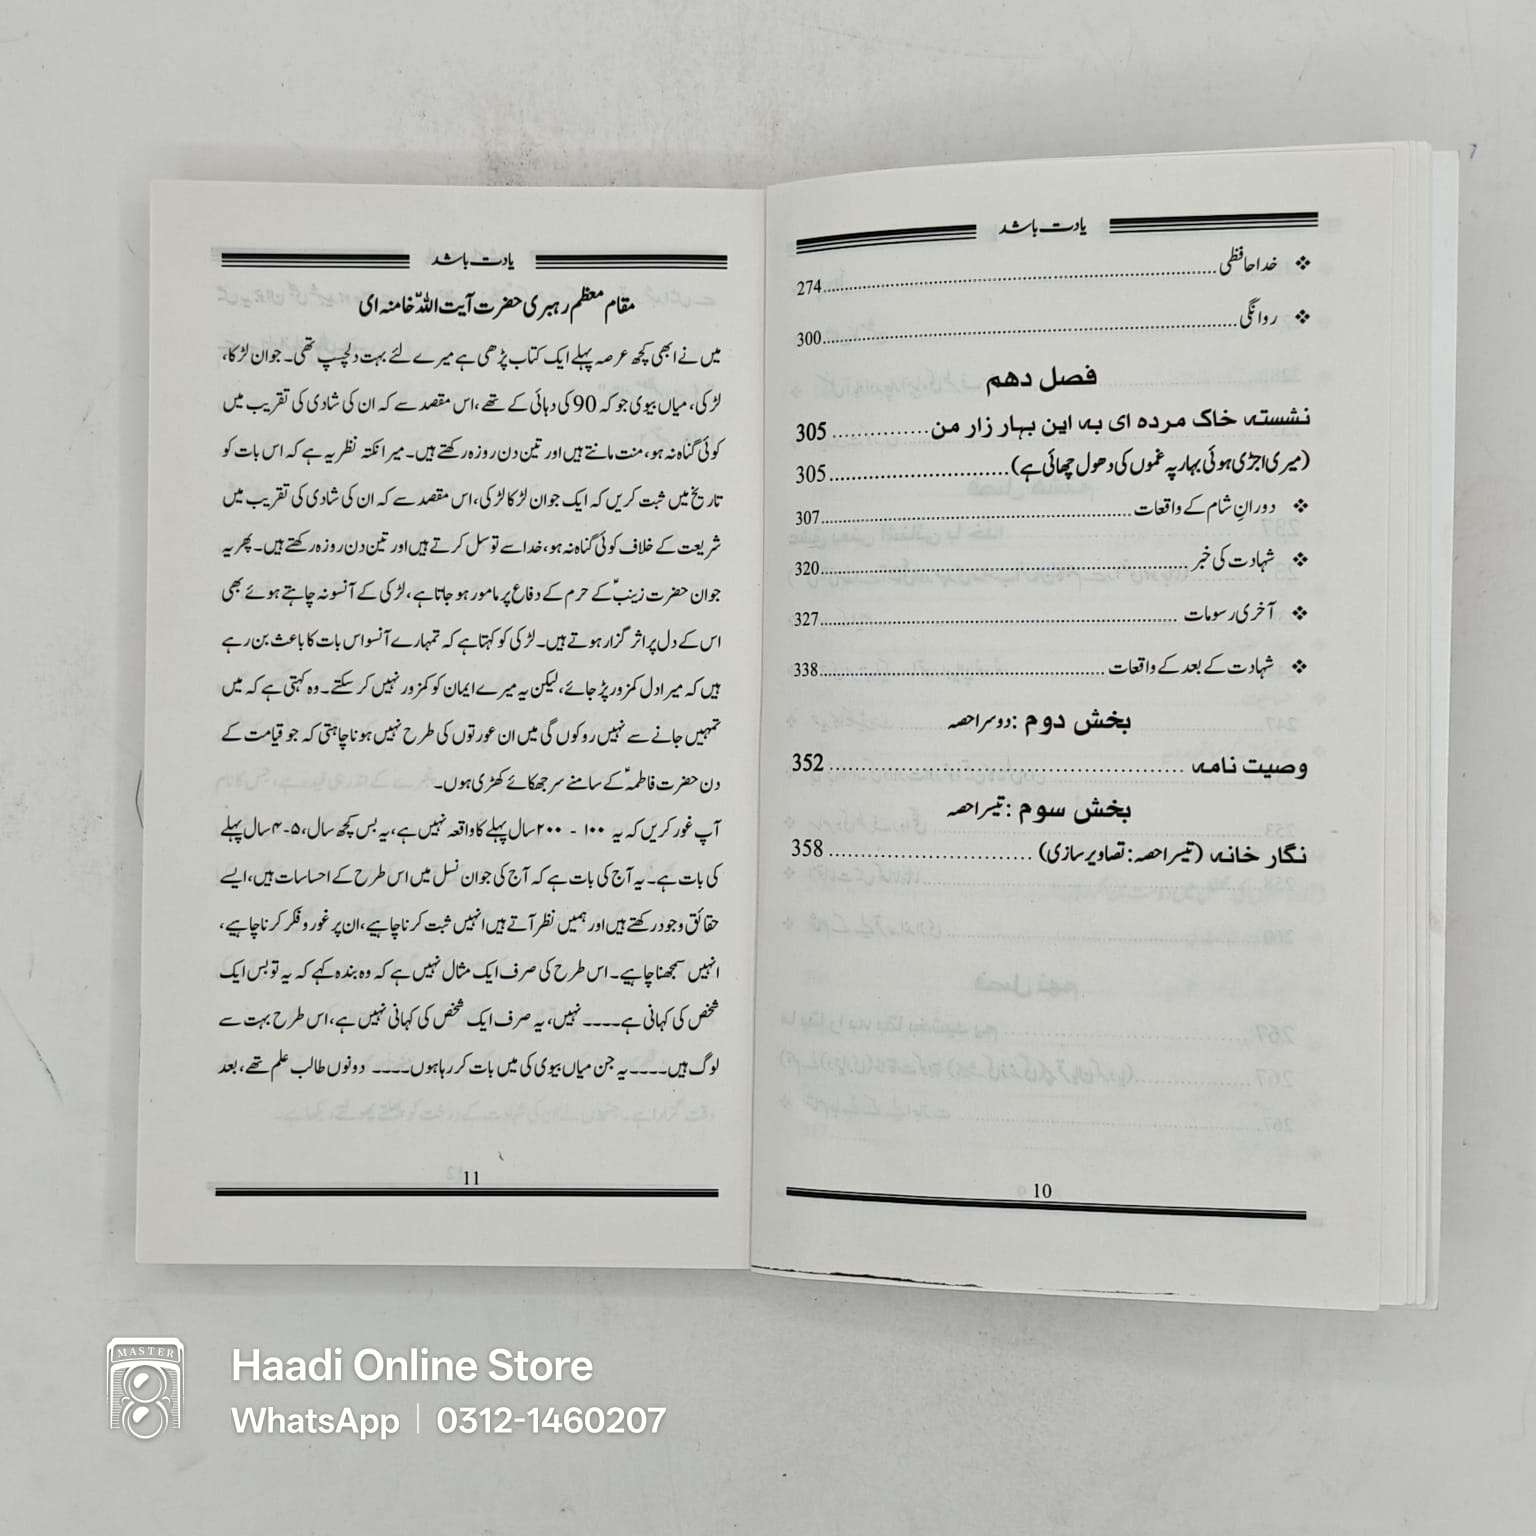 یادت باشد
خداحافظی 274
روانگی 300
فصل دهم
نشسته خاک مرده ای به این بهار زار من 305
(میری اجڑی ہوئی بہار پہ غموں کی دھول چھائی ہے) 305
دورانِ شام کے واقعات 307
شہادت کی خبر 320
آخری رسومات 327
شہادت کے بعد کے واقعات 338
بخش دوم: دوسرا حصہ
وصیت نامہ 352
بخش سوم: تیسرا حصہ
نگار خانہ (تیسرا حصہ: تصاویر سازی) 358
10
یادت باشد
مقام معظم رہبری حضرت آیت اللہ خامنہ ای
میں نے ابھی کچھ عرصہ پہلے ایک کتاب پڑھی ہے میرے لئے بہت دلچسپ تھی۔ جوان لڑکا،
لڑکی، میاں بیوی جو کہ 90 کی دہائی کے تھے، اس مقصد سے کہ ان کی شادی کی تقریب میں
کوئی گناہ نہ ہو، منت مانتے ہیں اور تین دن روزہ رکھتے ہیں۔ میرا نکتہ نظر یہ ہے کہ اس بات کو
تاریخ میں ثبت کریں کہ ایک جوان لڑکا لڑکی، اس مقصد سے کہ ان کی شادی کی تقریب میں
شریعت کے خلاف کوئی گناہ نہ ہو، خدا سے توسل کرتے ہیں اور تین دن روزہ رکھتے ہیں۔ پھر یہ
جوان حضرت زینبؑ کے حرم کے دفاع پر مامور ہو جاتا ہے، لڑکی کے آنسو نہ چاہتے ہوئے بھی
اس کے دل پر اثر گزار ہوتے ہیں۔ لڑکی کو کہتا ہے کہ تمہارے آنسو اس بات کا باعث بن رہے
ہیں کہ میرا دل کمزور پڑ جائے، لیکن یہ میرے ایمان کو کمزور نہیں کر سکتے۔ وہ کہتی ہے کہ میں
تمہیں جانے سے نہیں روکوں گی میں ان عورتوں کی طرح نہیں ہونا چاہتی کہ جو قیامت کے
دن حضرت فاطمہؑ کے سامنے سر جھکائے کھڑی ہوں۔
آپ غور کریں کہ یہ ۱۰۰ - ۲۰۰ سال پہلے کا واقعہ نہیں ہے، یہ بس کچھ سال، ۵-۴ سال پہلے
کی بات ہے۔ یہ آج کی بات ہے کہ آج کی جوان نسل میں اس طرح کے احساسات ہیں، ایسے
حقائق وجود رکھتے ہیں اور ہمیں نظر آتے ہیں انہیں ثبت کرنا چاہیے، ان پر غور و فکر کرنا چاہیے،
انہیں سمجھنا چاہیے۔ اس طرح کی صرف ایک مثال نہیں ہے کہ وہ بندہ کہے کہ یہ تو بس ایک
شخص کی کہانی ہے۔۔۔۔ نہیں، یہ صرف ایک شخص کی کہانی نہیں ہے، اس طرح بہت سے
لوگ ہیں۔۔۔۔ یہ جن میاں بیوی کی میں بات کر رہا ہوں۔۔۔۔ دونوں طالب علم تھے، بعد
11
MASTER
Haadi Online Store
WhatsApp | 0312-1460207